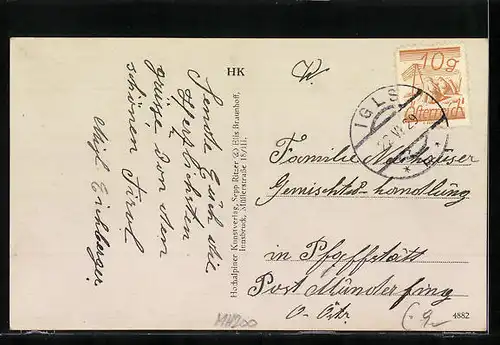 HK
Sende Euch die
herzlichsten
Grüsse von dem
schönen Tirol
Eichberger
Hochalpiner Kunstverlag, Sepp Ritzer (Z) Elis Braunhoff,
Innsbruck, Müllerstraße 18/III.
W.
10g
Österreich
IGLS
Familie
Gemischtw-handlung
in Pfaffstätt
Post Munderfing
O-Östr.
4882
MH200